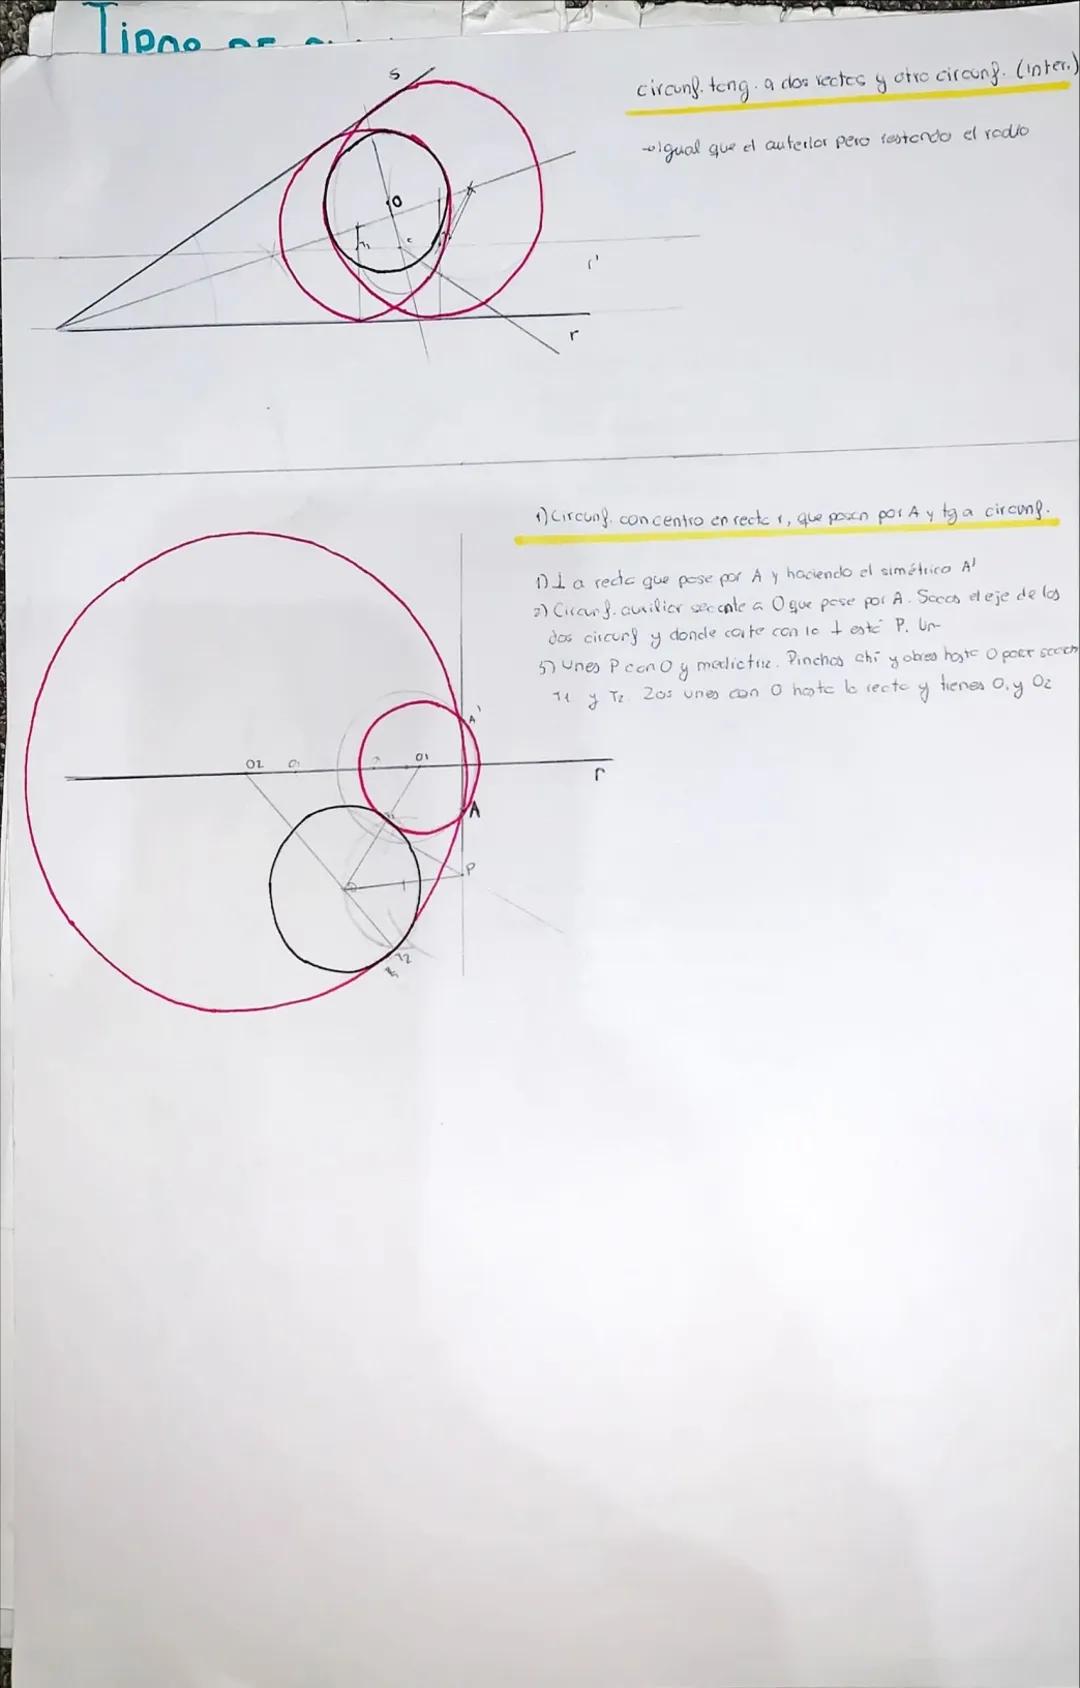 Tipos de
circunf. tang. a dos rectas y otra circunf. (inter.)
→ igual que el anterior pero restando el radio
s
O
T1
c
r'
r
1) Circunf. con centro en recta r, que pasan por A y tg a circunf.
1) ⊥ a recta que pase por A y haciendo el simétrico A'
2) Circunf. auxiliar secante a O que pase por A. Sacas el eje de las
dos circunf y donde corte con la ⊥ está P. Un
3) Unes P con O y mediatriz. Pinchas ahí y abres hasta O para sacar
T1 y T2. Los unes con O hasta la recta y tienes O1 y O2
A'
O2
O1
r
A
P
O
T2